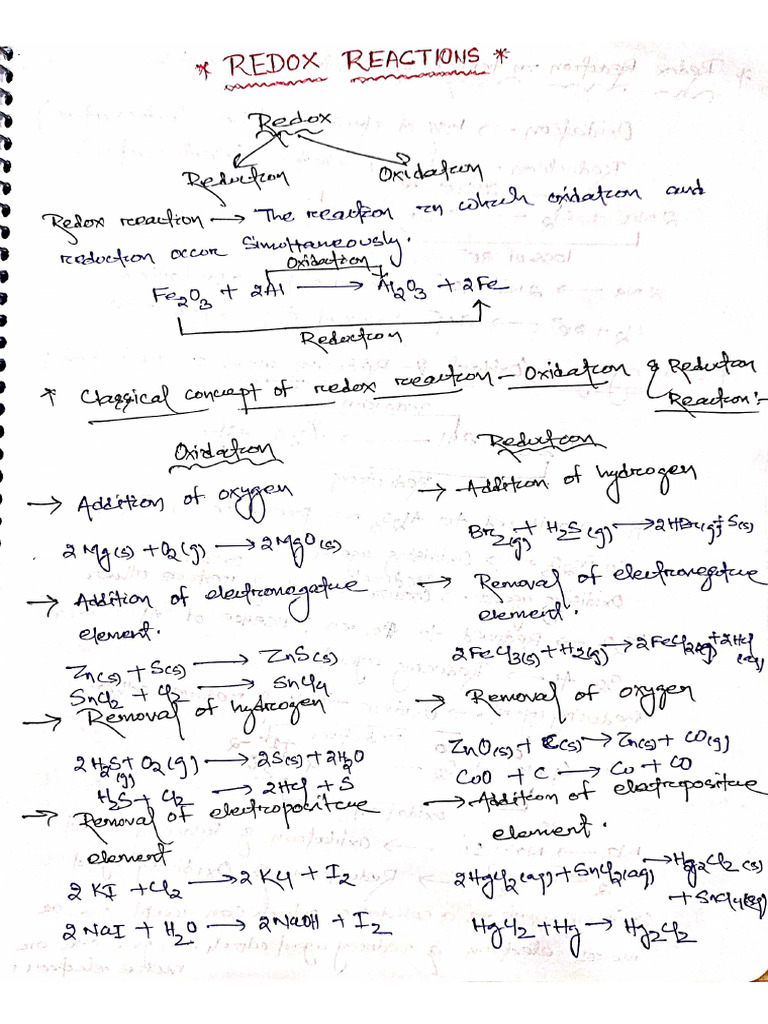 * REDOX REACTIONS *
Redox
Reduction Oxidation
Redox reaction → The reaction in which oxidation and
reduction occur simultaneously.
Oxidation
Fe₂O₃ + 2Al → Al₂O₃ + 2Fe
Reduction
* Classical concept of redox reaction - Oxidation & Reduction
Reaction :-
Oxidation
→ Addition of oxygen
2Mg(s) + O₂(g) → 2MgO(s)
→ Addition of electronegative
element.
Zn(s) + S(s) → ZnS(s)
SnCl₂ + Cl₂ → SnCl₄
→ Removal of hydrogen
2H₂S(g) + O₂(g) → 2S(s) + 2H₂O
H₂S + Cl₂ → 2HCl + S
→ Removal of electropositive
element
2KI + Cl₂ → 2KCl + I₂
2NaI + H₂O → 2NaOH + I₂
Reduction
→ Addition of hydrogen
Br₂(g) + H₂S(g) → 2HBr(g) + S(s)
→ Removal of electronegative
element.
2FeCl₃(s) + H₂(g) → 2FeCl₂(g) + 2HCl
→ Removal of oxygen
ZnO(s) + C(s) → Zn(s) + CO(g)
CoO + C → Co + CO
→ Addition of electropositive
element.
2HgCl₂(aq) + SnCl₂(aq) → Hg₂Cl₂(s)
+ SnCl₄(aq)
HgCl₂ + Hg → Hg₂Cl₂